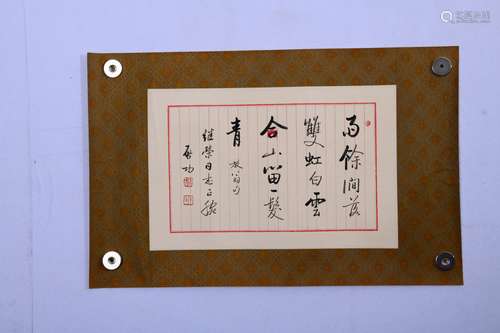 雨餘澗落
雙虹白雲
合山留一髮
青 放翁句
继榮同志正腕
启功